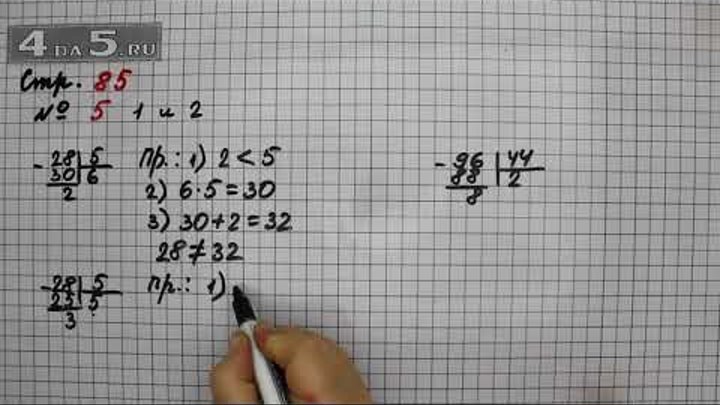 4DA5.RU
Стр. 85
№ 5 1 и 2
- 28 | 5
30 | 6
2
Пр.: 1) 2 < 5
2) 6·5=30
3) 30+2=32
28≠32
- 28 | 5
25 | 5
3
Пр.: 1)
- 96 | 44
88 | 2
8